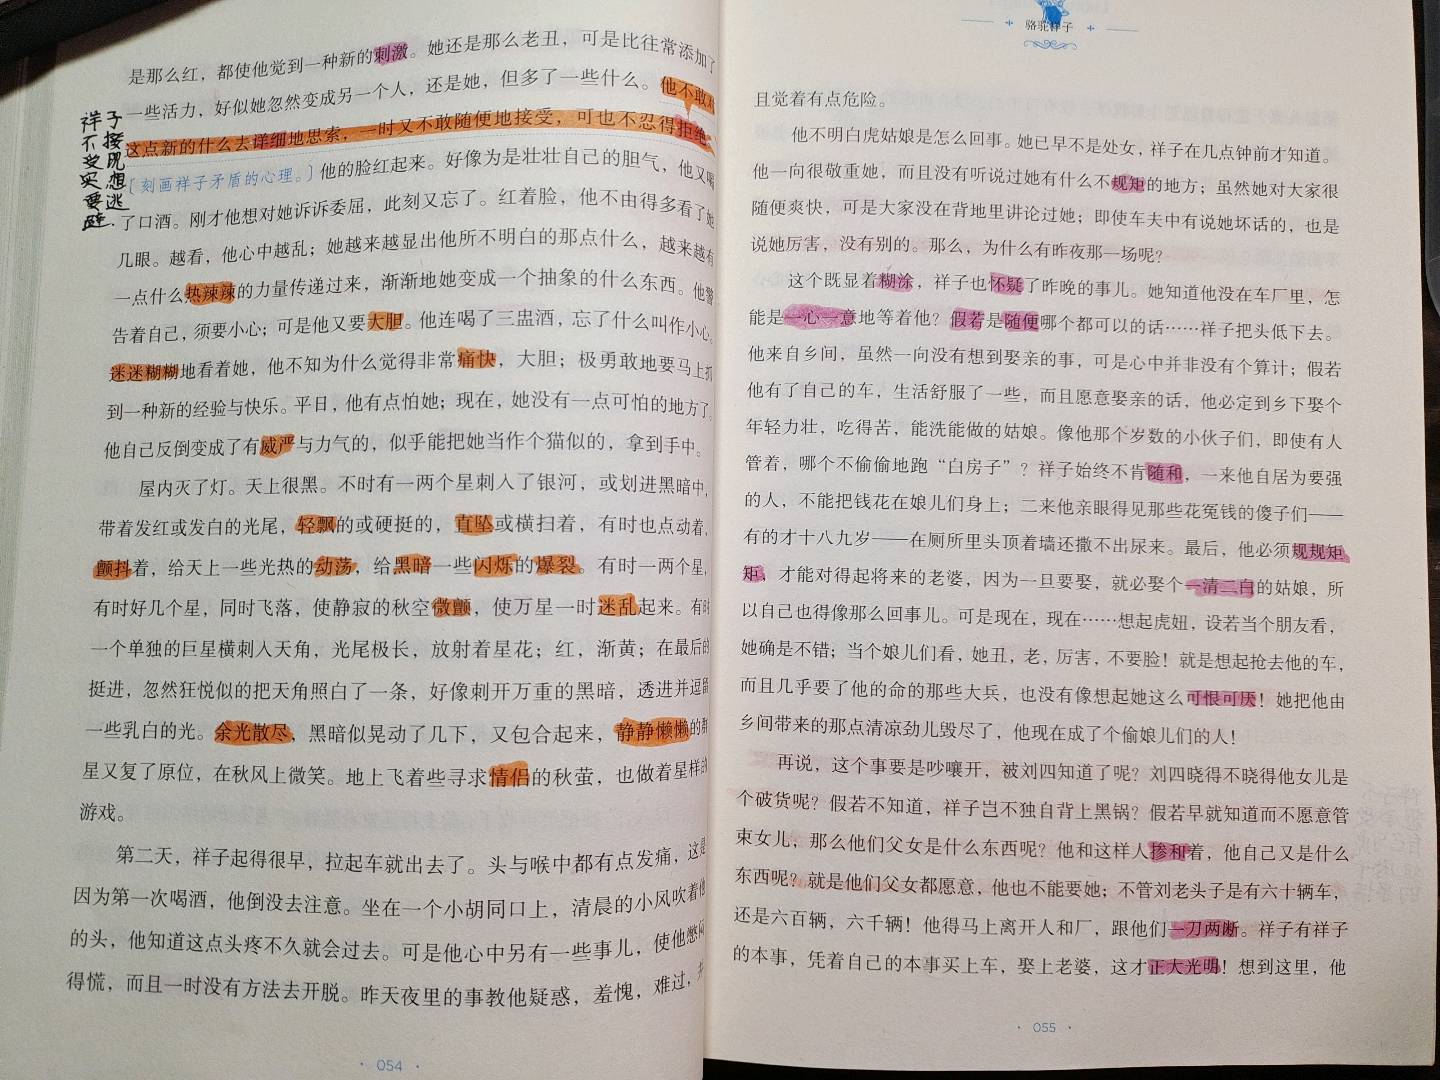 是那么红，都使他觉到一种新的刺激。她还是那么老丑，可是比往常添加了
一些活力，好似她忽然变成另一个人，还是她，但多了一些什么。他不敢对
这点新的什么去详细地思索，一时又不敢随便地接受，可也不忍得拒绝。
[刻画祥子矛盾的心理。]他的脸红起来。好像为是壮壮自己的胆气，他又喝
了口酒。刚才他想对她诉诉委屈，此刻又忘了。红着脸，他不由得多看了她
几眼。越看，他心中越乱；她越来越显出他所不明白的那点什么，越来越有
一点什么热辣辣的力量传递过来，渐渐地她变成一个抽象的什么东西。他警
告着自己，须要小心；可是他又要大胆。他连喝了三盅酒，忘了什么叫作小心。
迷迷糊糊地看着她，他不知为什么觉得非常痛快，大胆；极勇敢地要马上抓
到一种新的经验与快乐。平日，他有点怕她；现在，她没有一点可怕的地方了。
他自己反倒变成了有威严与力气的，似乎能把她当作个猫似的，拿到手中。
屋内灭了灯。天上很黑。不时有一两个星刺入了银河，或划进黑暗中，
带着发红或发白的光尾，轻飘的或硬挺的，直坠或横扫着，有时也点动着，
颤抖着，给天上一些光热的动荡，给黑暗一些闪烁的爆裂。有时一两个星，
有时好几个星，同时飞落，使静寂的秋空微颤，使万星一时迷乱起来。有时
一个单独的巨星横刺入天角，光尾极长，放射着星花；红，渐黄；在最后的
挺进，忽然狂悦似的把天角照白了一条，好像刺开万重的黑暗，透进并逗留
一些乳白的光。余光散尽，黑暗似晃动了几下，又包合起来，静静懒懒的群
星又复了原位，在秋风上微笑。地上飞着些寻求情侣的秋萤，也做着星样的
游戏。
第二天，祥子起得很早，拉起车就出去了。头与喉中都有点发痛，这是
因为第一次喝酒，他倒没去注意。坐在一个小胡同口上，清晨的小风吹着他
的头，他知道这点头疼不久就会过去。可是他心中另有一些事儿，使他憋闷
得慌，而且一时没有方法去开脱。昨天夜里的事教他疑惑，羞愧，难过，并
祥子
不接
受现
实想
要逃
避.
· 054 ·
骆驼祥子
且觉着有点危险。
他不明白虎姑娘是怎么回事。她已早不是处女，祥子在几点钟前才知道。
他一向很敬重她，而且没有听说过她有什么不规矩的地方；虽然她对大家很
随便爽快，可是大家没在背地里讲论过她；即使车夫中有说她坏话的，也是
说她厉害，没有别的。那么，为什么有昨夜那一场呢？
这个既显着糊涂，祥子也怀疑了昨晚的事儿。她知道他没在车厂里，怎
能是一心一意地等着他？假若是随便哪个都可以的话……祥子把头低下去。
他来自乡间，虽然一向没有想到娶亲的事，可是心中并非没有个算计；假若
他有了自己的车，生活舒服了一些，而且愿意娶亲的话，他必定到乡下娶个
年轻力壮，吃得苦，能洗能做的姑娘。像他那个岁数的小伙子们，即使有人
管着，哪个不偷偷地跑“白房子”？祥子始终不肯随和，一来他自居为要强
的人，不能把钱花在娘儿们身上；二来他亲眼得见那些花冤钱的傻子们——
有的才十八九岁——在厕所里头顶着墙还撒不出尿来。最后，他必须规规矩
矩，才能对得起将来的老婆，因为一旦要娶，就必娶个一清二白的姑娘，所
以自己也得像那么回事儿。可是现在，现在……想起虎妞，设若当个朋友看，
她确是不错；当个娘儿们看，她丑，老，厉害，不要脸！就是想起抢去他的车，
而且几乎要了他的命的那些大兵，也没有像想起她这么可恨可厌！她把他由
乡间带来的那点清凉劲儿毁尽了，他现在成了个偷娘儿们的人！
再说，这个事要是吵嚷开，被刘四知道了呢？刘四晓得不晓得他女儿是
个破货呢？假若不知道，祥子岂不独自背上黑锅？假若早就知道而不愿意管
束女儿，那么他们父女是什么东西呢？他和这样人掺和着，他自己又是什么
东西呢？就是他们父女都愿意，他也不能要她；不管刘老头子是有六十辆车，
还是六百辆，六千辆！他得马上离开人和厂，跟他们一刀两断。祥子有祥子
的本事，凭着自己的本事买上车，娶上老婆，这才正大光明！想到这里，他
· 055 ·